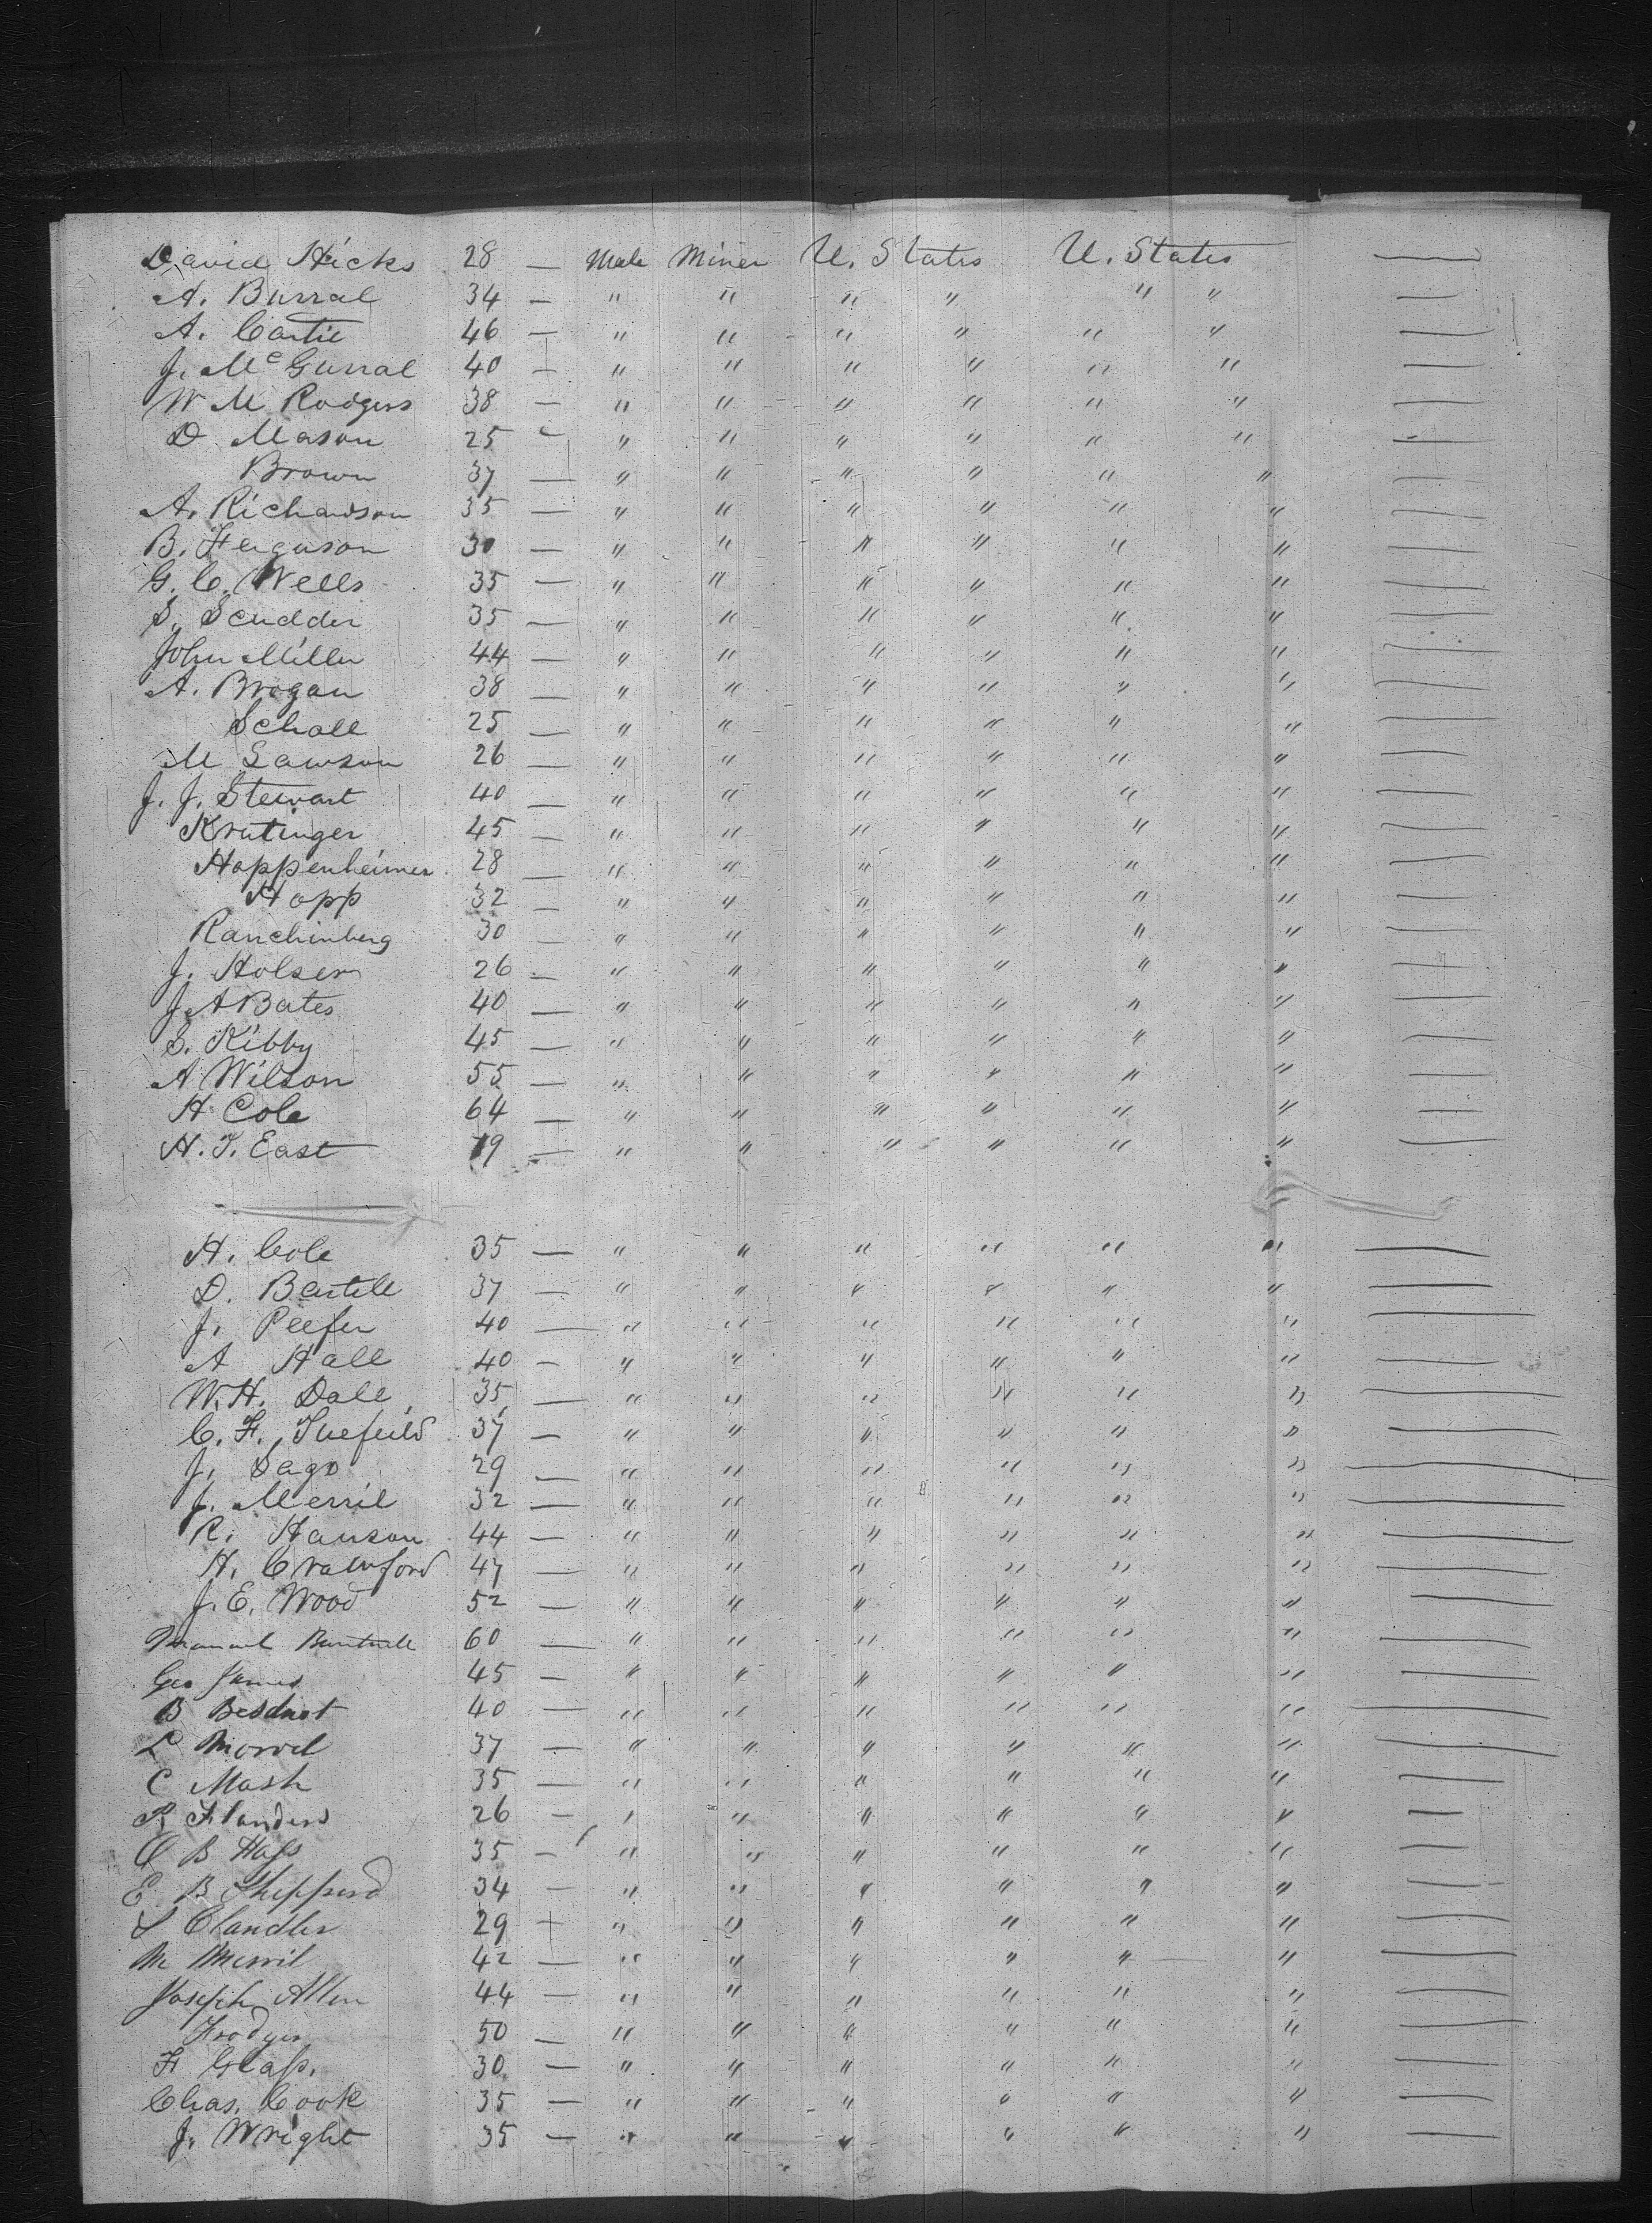 David Hicks 28 — Male Miner U. States U. States —
A. Burral 34 — " " " " " " —
A. Cartie 46 — " " " " " " —
J. McGurral 40 — " " " " " " —
W M Rodgers 38 — " " " " " " —
D Mason 25 — " " " " " " —
Brown 37 — " " " " " " —
A. Richardson 35 — " " " " " " —
B. Ferguson 30 — " " " " " " —
G. C. Wells 35 — " " " " " " —
S. Scudder 35 — " " " " " " —
John Miller 44 — " " " " " " —
A. Brogan 38 — " " " " " " —
Schall 25 — " " " " " " —
M Lawson 26 — " " " " " " —
J. J. Stewart 40 — " " " " " " —
Kratinger 45 — " " " " " " —
Happenheimer 28 — " " " " " " —
Hopp 32 — " " " " " " —
Ranchinberg 30 — " " " " " " —
J. Holser 26 — " " " " " " —
J. A Bates 40 — " " " " " " —
S. Kibby 45 — " " " " " " —
A Wilson 55 — " " " " " " —
H Cole 64 — " " " " " " —
H. T. East 19 — " " " " " " —
H. Cole 35 — " " " " " " —
D. Bartell 37 — " " " " " " —
J. Peefer 40 — " " " " " " —
A Hall 40 — " " " " " " —
W. H. Dale 35 — " " " " " " —
C. F. 37 — " " " " " " —
J. Sago 29 — " " " " " " —
J. Merril 32 — " " " " " " —
R. Hanson 44 — " " " " " " —
H. Crawford 47 — " " " " " " —
J. E. Wood 52 — " " " " " " —
60 — " " " " " " —
Geo James 45 — " " " " " " —
B 40 — " " " " " " —
L 37 — " " " " " " —
C Mash 35 — " " " " " " —
R Flanders 26 — " " " " " " —
B Hass 35 — " " " " " " —
E B Shepperd 34 — " " " " " " —
S Clandler 29 — " " " " " " —
M Merril 42 — " " " " " " —
Joseph Allen 44 — " " " " " " —
Frodyer 50 — " " " " " " —
F Glass. 30 — " " " " " " —
Chas. Cook 35 — " " " " " " —
J. Wright 35 — " " " " " " —